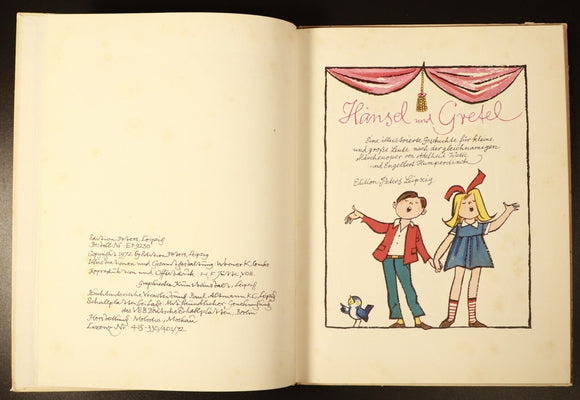 Edition Peters, Leipzig
Bestell-Nr. E.P. 9250
Copyright 1972 by Edition Peters, Leipzig
Illustrationen und Gesamtgestaltung Werner Klemke
Reproduktion und Offsetdruck H.F. Jütte, VOB
Graphische Kunstanstalt, Leipzig
Buchbinderische Verarbeitung Paul Altmann KG, Leipzig
Schallplatten mit freundlicher Genehmigung
des VEB Deutsche Schallplatten, Berlin
Herstellung Melodia, Moskau
Lizenz-Nr. 415-330/401/72
Hänsel und Gretel
Eine illustrierte Geschichte für kleine
und große Leute nach der gleichnamigen
Märchenoper von Adelheid Wette
und Engelbert Humperdinck
Edition Peters Leipzig